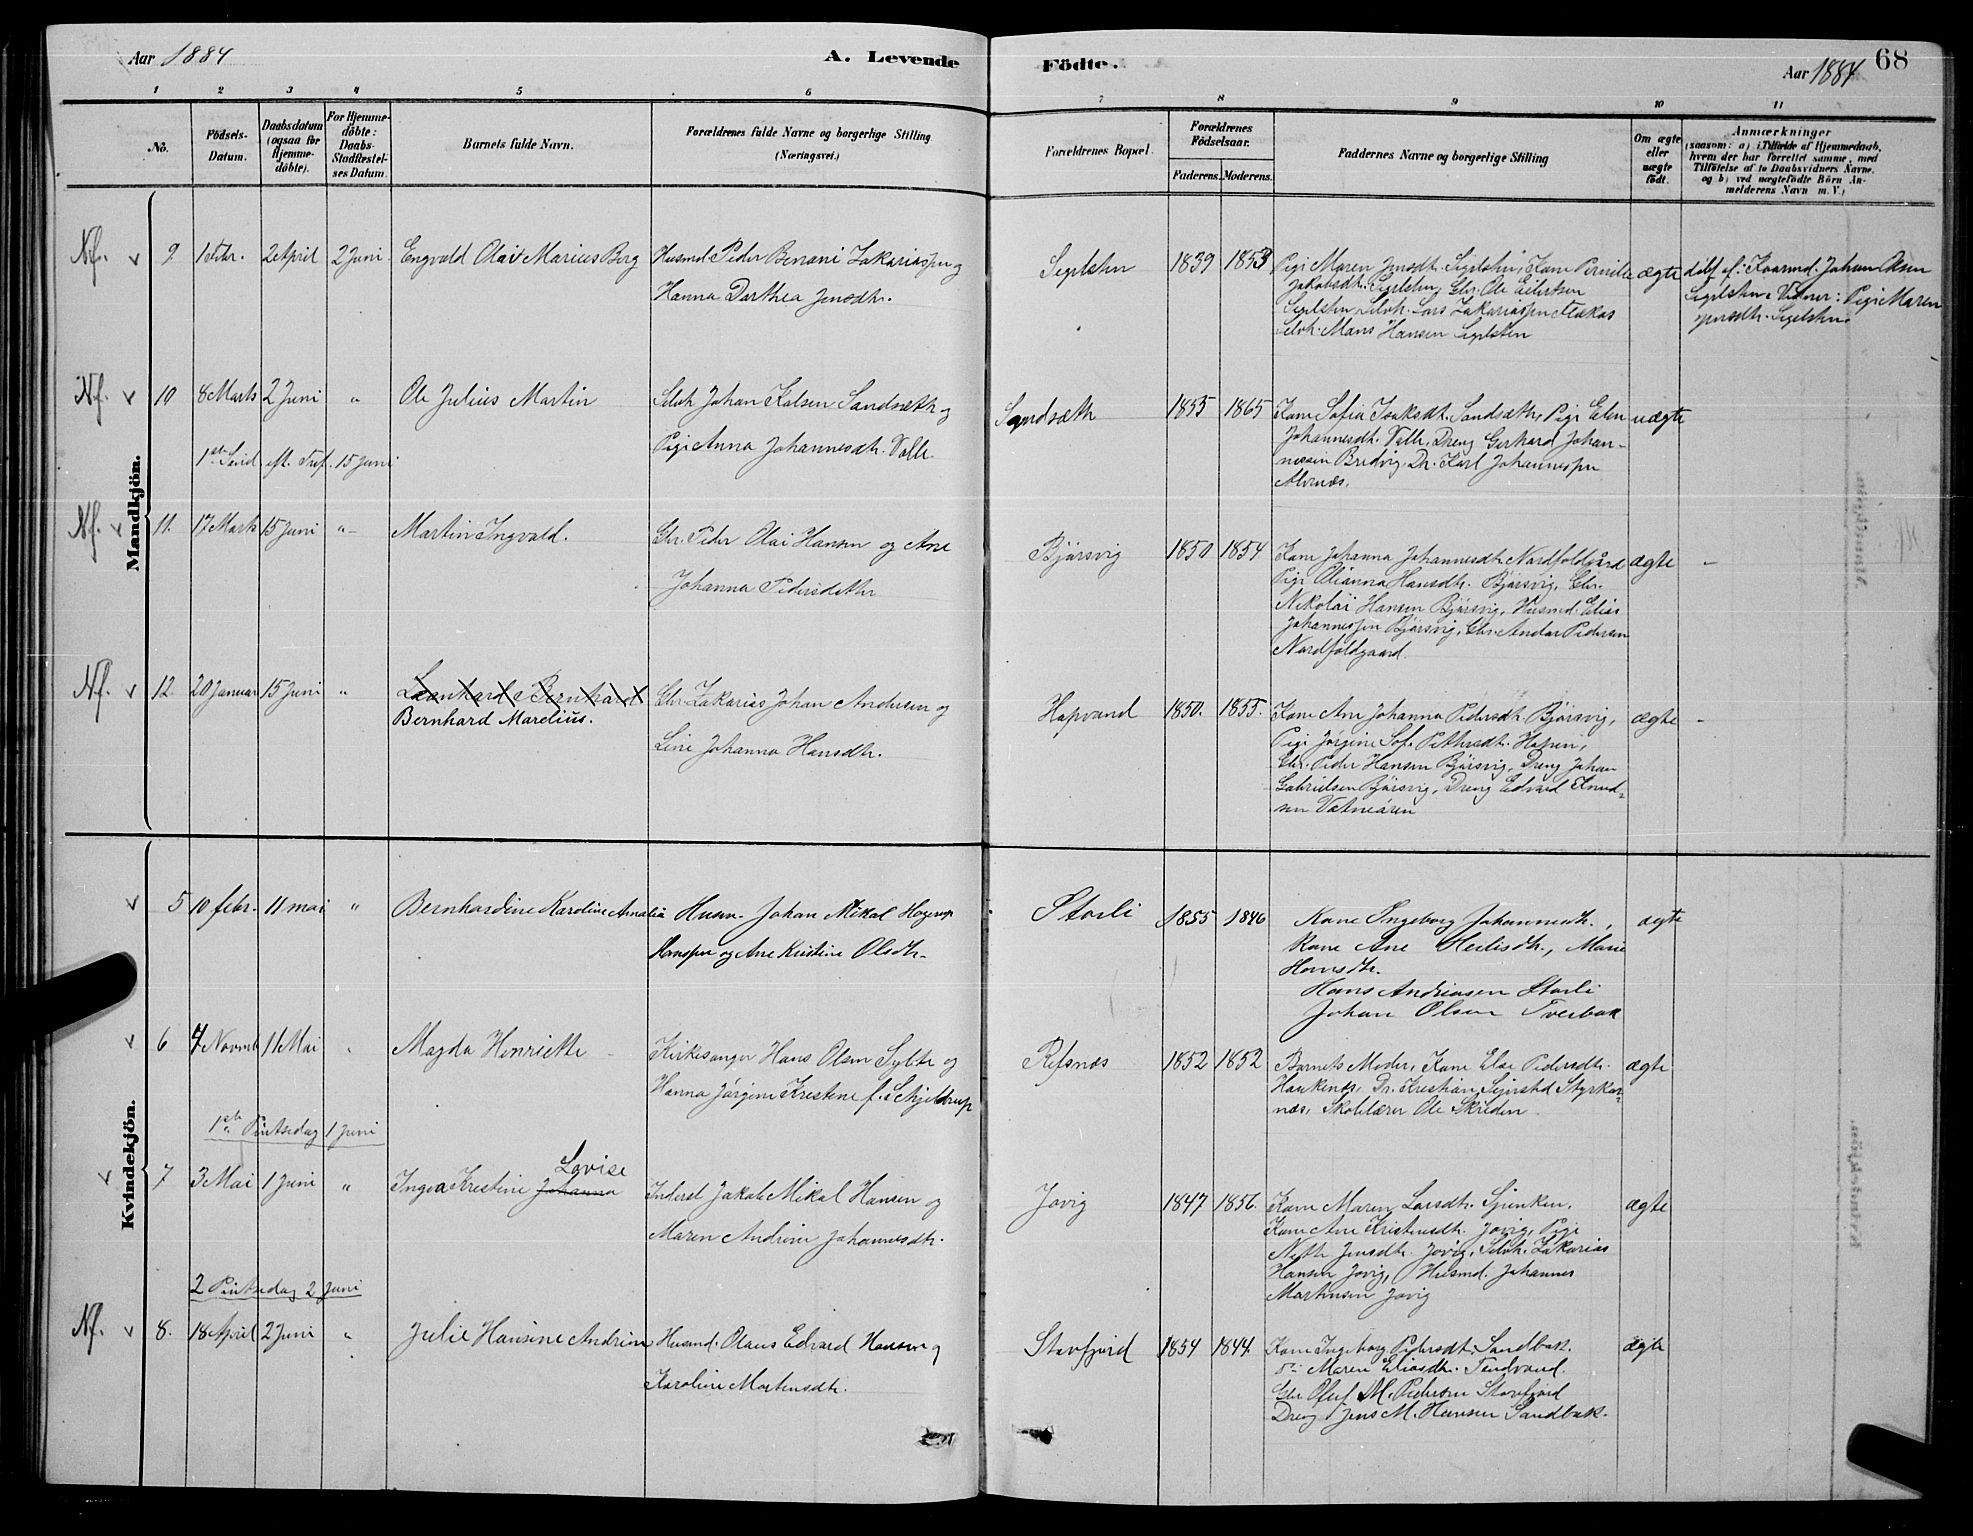 Aar 1884
A. Levende
Födte.
Aar 1884
68
1 2 3 4 5 6 7 8 9 10 11
No.
Födsels-
Datum.
Daabsdatum
(ogsaa for
Hjemme-
döbte).
For Hjemme-
döbte:
Daabs-
Stadfæstel-
ses Datum.
Barnets fulde Navn.
Forældrenes fulde Navne og borgerlige Stilling
(Næringsvei.)
Forældrenes Bopæl.
Forældrenes
Födselsaar.
Faderens. Moderens.
Faddernes Navne og borgerlige Stilling
Om ægte
eller
uægte
födt.
Anmærkninger
(saasom: a) i Tilfælde af Hjemmedaab,
hvem der har forrettet samme, med
Tilföielse af to Daabsvidners Navne.
og b) ved uægtefödte Börn An-
melderens Navn m. V.)
Mandkjön.
Nf. v 9 1 Febr. 2 April 2 Juni Engvald Olai Marius Berg
Husmd Peder Benoni Zakariassen og
Hanna Dorthea Jensdtr.
Segelsten 1839 1853
Pige Maren Jensdtr. Segelsten, Kone Pernille
Jakobsdtr. Segelsten, Gbr. Ole Eilertsen
Segelsten, Selvh. Lars Zakariassen
Selvh. Mans Hansen Segelsten
ægte
døbt af: Kaarmd. Johan Olsen
Segelsten, Vidner: Pige Maren
Jensdtr. Segelsten.
Nf. v 10 8 Marts 2 Juni " Ole Julius Martin
Selvh Johan Kolsen Sandsæth og
Pige Anna Johannesdtr. Valle.
Sandsæth 1855 1865
Kone Sofia Isaksdt. Sandsæth, Pige Elen
Johannesdt. Valle, Dreng Gerhard Johan-
nessen Bredvig, Dr. Karl Johannessen
Alvenæs.
uægte
1st Sønd. eft. Tref. 15 Juni
Nf. v 11. 17 Marts 15 Juni " Martin Ingvald.
Gbr. Peder Olai Hansen og Ane
Johanna Pedersdatter
Bjørsvig 1850 1854
Kone Johanna Johannesdtr. Nordfoldgård
Pige Olianna Hansdtr. Bjørsvig, Gbr.
Nikolai Hansen Bjørsvig, Husmd. Elias
Johannessen Bjørsvig, Gbr. Andor Pedersen
Nordfoldgaard.
ægte "
Nf. v 12. 20 Januar 15 Juni " Leonhard Bernhard
Bernhard Marelius.
Gbr. Zakarias Johan Andersen og
Line Johanna Hansdtr.
Hopvand 1850. 1855.
Kone Ane Johanna Pedersdtr. Bjørsvig,
Pige Jørgine Sof. Pethresdtr. Hopen,
Gbr. Peder Hansen Bjørsvig, Dreng Johan
Gabrielsen Bjørsvig, Dreng Edvard Knud-
sen Vatneøren
ægte "
Kvindekjön.
v 5 10 febr. 11 mai " Bernhardine Karoline Amalia
Husm. Johan Mikal Hagerup
Hanssen og Ane Kristine Olsdtr.
Storli 1855 1846
Kone Ingeborg Johannesdtr.,
Kone Ane Heilisdtr., Marie
Hansdtr.
Hans Andreasen Storli
Johan Olsen Tverbak
ægte
v 6 4 Novmb 11 Mai " Magda Henriette
Kirkesanger Hans Olsen Sylte og
Hanna Jørgine Kristine f. Schjeldrup
Refsnæs 1852 1852
Barnets Moder, Kone Else Pedersdtr.
Haukenæs, Dr. Kristian Sejrsted Styrkes-
næs, Skolelærer Ole Skriden
ægte
1ste Pintsedag 1 Juni
v 7 3 Mai 1 Juni " Ingva Kristine Johanna Lovise
Inderst Jakob Mikal Hansen og
Maren Andrine Johannesdtr.
Jovig 1847 1856.
Kone Maren Larsdtr. Spenken,
Kone Ane Kristensdtr. Jovig, Pige
Nette Jensdtr. Jovig, Selvh. Zakarias
Hansen Jovig, Husmd. Johannes
Martinsen Jovig
ægte
2 Pintsedag 2 Juni
Nf. v 8. 18 April 2 Juni " Julie Hansine Andrine
Husmd. Olaus Edvard Hansen og
Karoline Mortensdtr.
Storfjord 1854 1844.
Kone Ingeborg Pedersdtr. Sandbak.
do Maren Eliasdtr. Tendvand.
Gbr Oluf M. Pedersen Storfjord
Dreng Jens M. Hansen Sandbak.
ægte